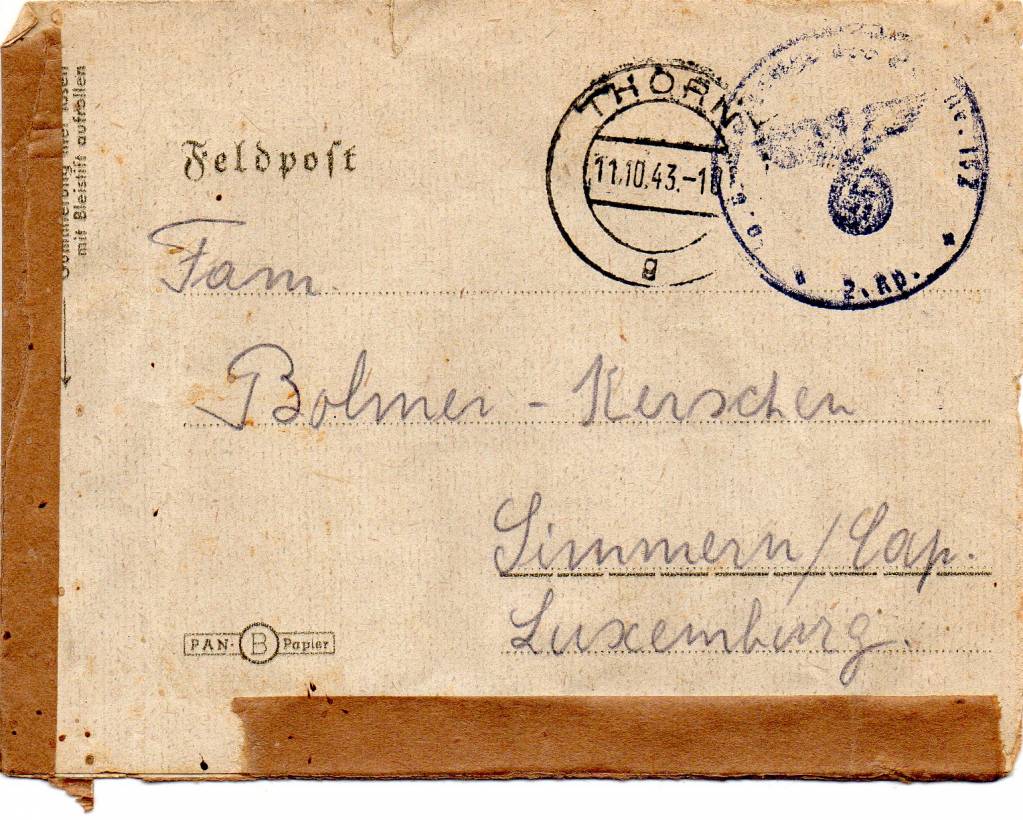 mit Bleistift aufrollen
Feldpost
THORN
11.10.43.-1
g
2. Kp.
Fam.
Bolmer - Kerschen
Simmern / Cap.
Luxemburg.
PAN- B Papier